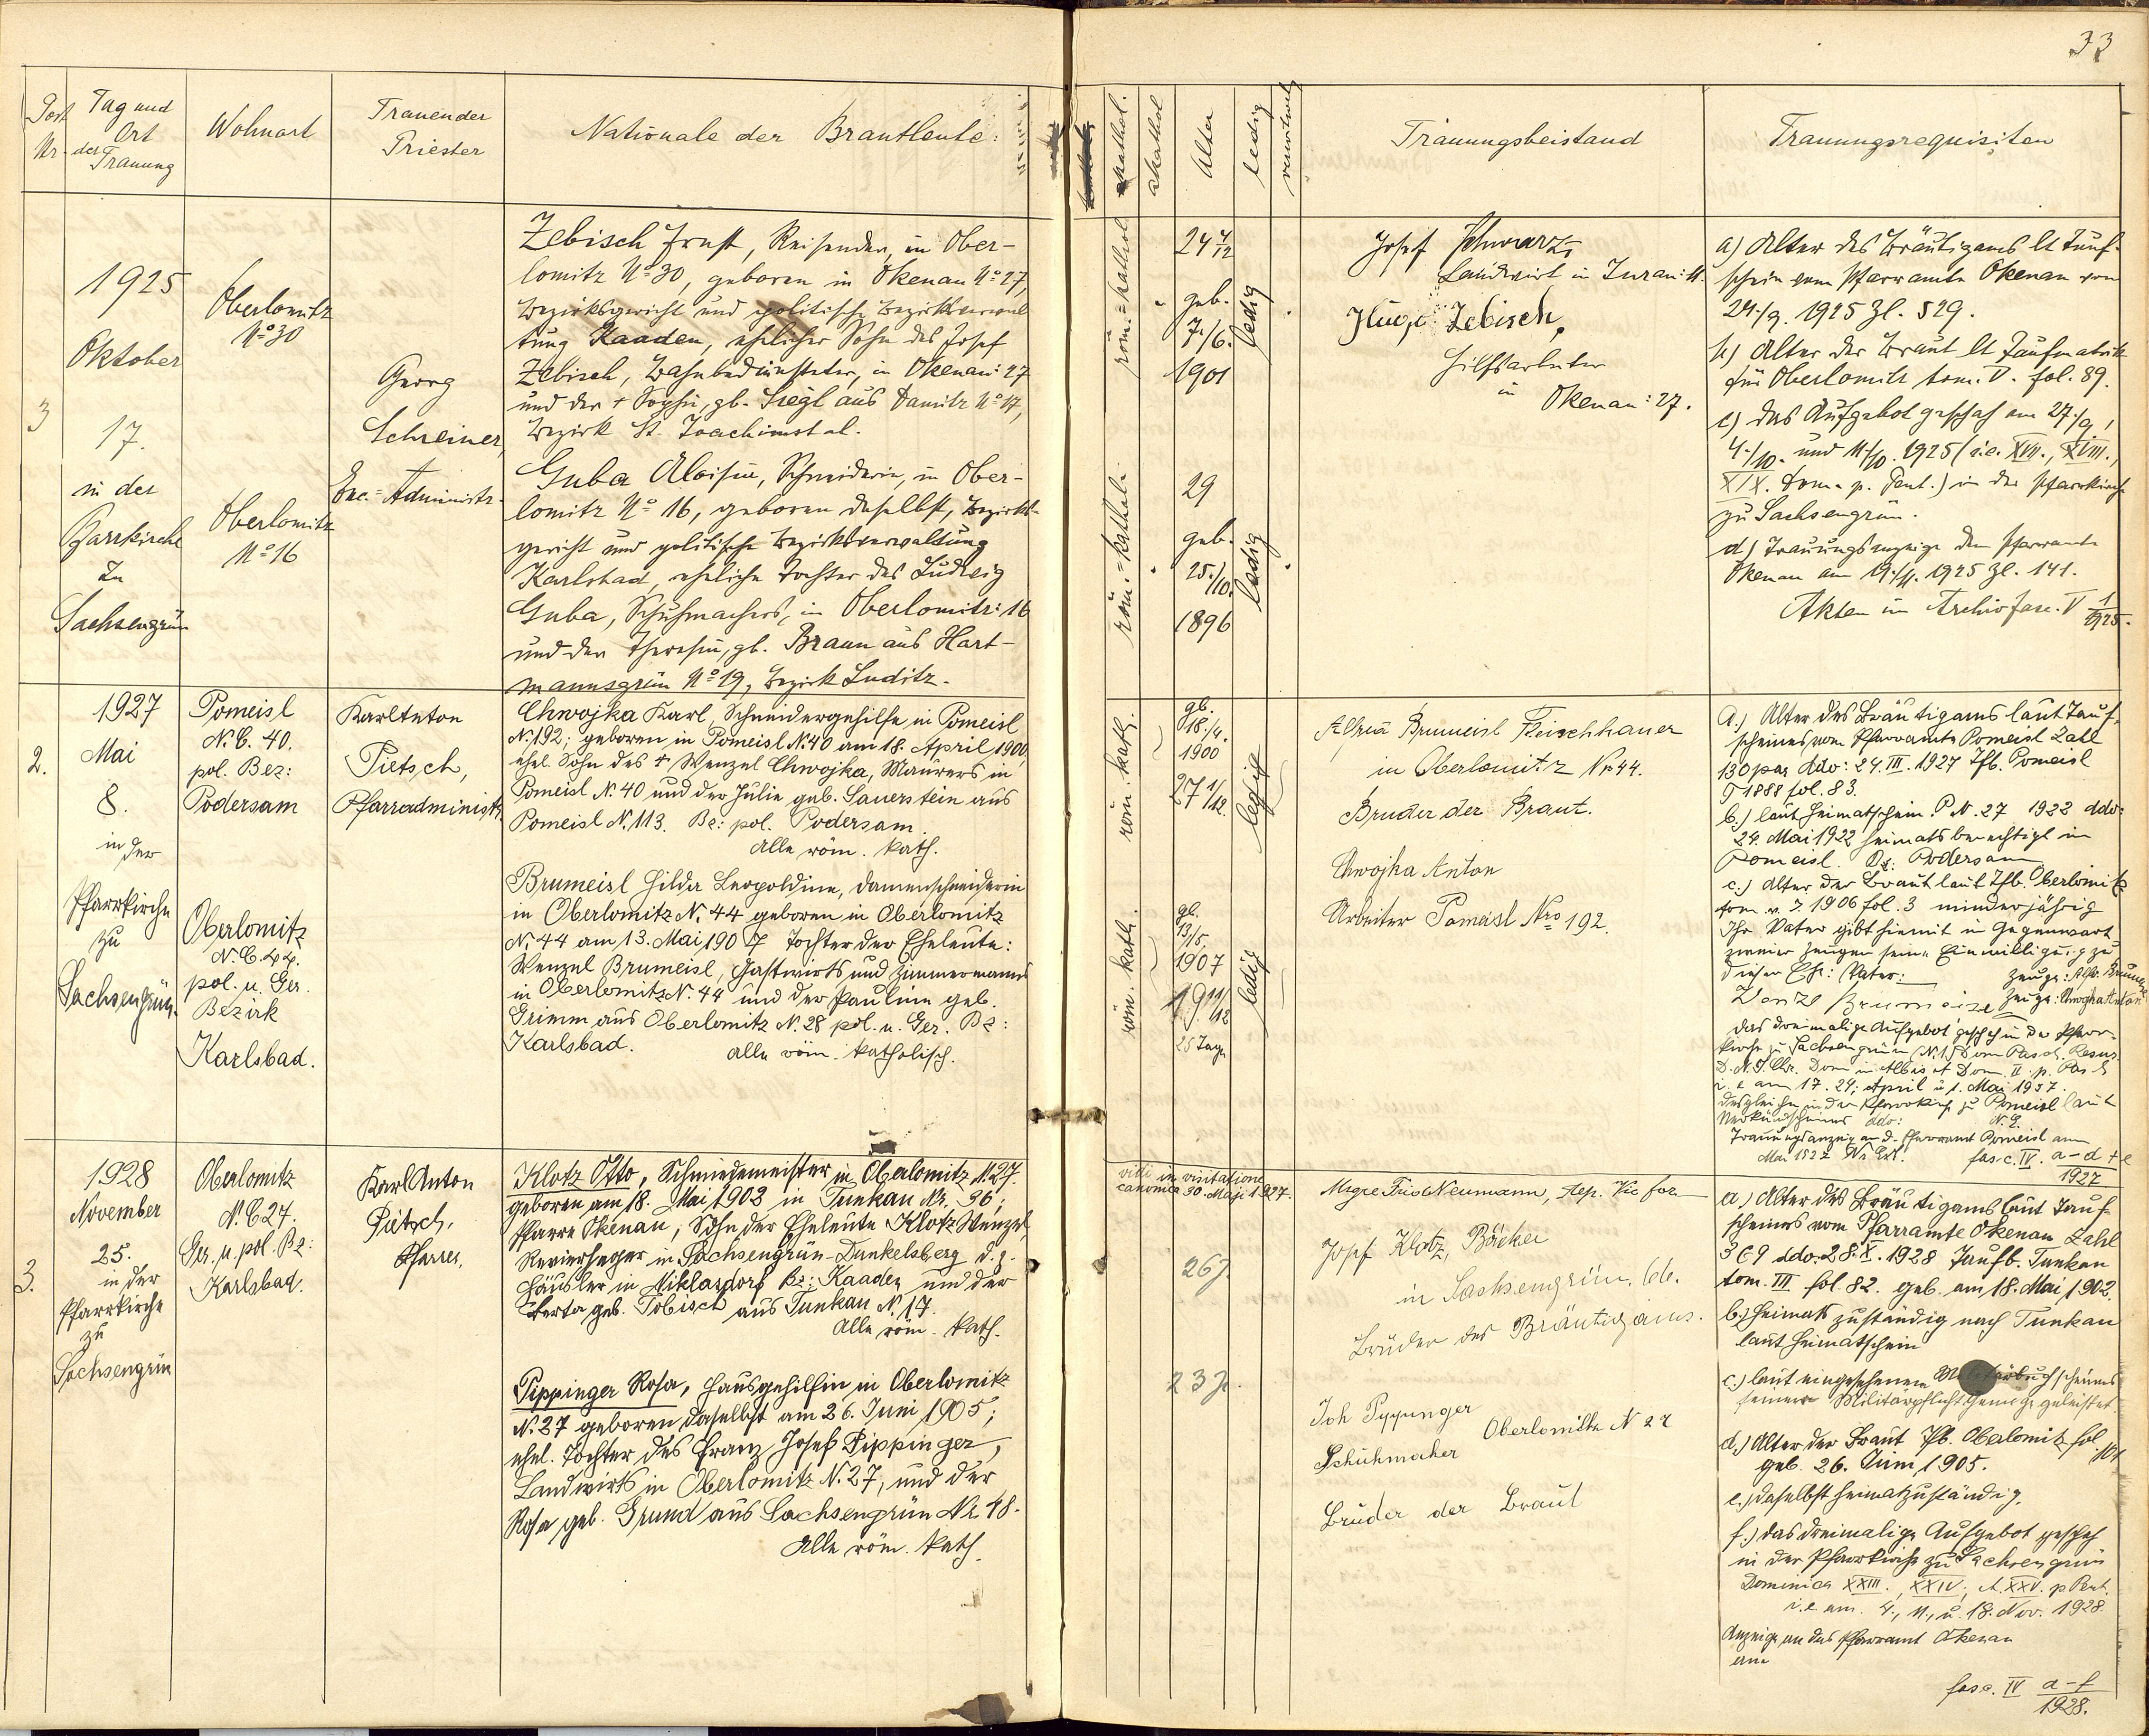 33
Post Nr.
Tag und
Ort
der
Trauung
Wohnort
Trauender
Priester
Nationale der Brautleute:
kathol.
akathol
Alter
ledig
verwitwet
Trauungsbeistand
Trauungsrequisiten
3
1925
Oktober
17.
in der
Pfarrkirche
zu
Sachsengrün
Oberlomitz
No 30
Oberlomitz
No 16
Georg
Schreiner,
Exc.=Administr.
Zebisch Ernst, Reisender, in Ober-
lomitz No 30, geboren in Okenau No 27,
Bezirksgericht und politische Bezirksverwal
tung Kaaden, ehelicher Sohn des Josef
Zebisch, Bahnbediensteter, in Okenau: 27
und der + Sophie, gb. Siegl aus Damitz No 17,
Bezirk St. Joachimstal.
Guba Aloisia, Schneiderin, in Ober-
lomitz No 16, geboren daselbst, Bezirks-
gericht und politische Bezirksverwaltung
Karlsbad, eheliche Tochter des Ludwig
Guba, Schuhmachers, in Oberlomitz: 16
und der Theresia, gb. Braun aus Hart-
mannsgrün No 19, Bezirk Luditz.
röm.=kathol.
24 4/12
geb.
7./6.
1901
ledig
röm.=kathol.
29
geb.
25./10.
1896
ledig
Josef Schwarz,
Landwirt in
Hugo Zebisch,
Hilfsarbeiter
in Okenau: 27.
a) Alter des Bräutigams lt Tauf-
schein vom Pfarramte Okenau vom
24./9. 1925 Zl. 529.
b) Alter der Braut lt Taufmatrik
für Oberlomitz tom. V. fol. 89.
c) das Aufgebot geschah am 27./9.,
4./10. und 11./10. 1925 (i.e. XVII., XVIII.,
XIX. Dom. p. Pent.) in der Pfarrkirche
zu Sachsengrün.
d) Trauungsanzeige dem Pfarramte
Okenau am 19./11. 1925 Zl. 141.
Akten im Archiv fasc. V 1/1925.
2.
1927
Mai
8.
in der
Pfarrkirche
zu
Sachsengrün.
Pomeisl
N.C. 40.
pol. Bez:
Podersam
Oberlomitz
N.C. 44.
pol. u. Ger.
Bezirk
Karlsbad.
Karl Anton
Pietsch,
Pfarradministr.
Chwojka Karl, Schneidergehilfe in Pomeisl
N. 192; geboren in Pomeisl N. 40 am 18. April 1900,
ehel. Sohn des + Wenzel Chwojka, Maurers in
Pomeisl N. 40 und der Julie geb. Sauerstein aus
Pomeisl N. 113. Bz: pol. Podersam.
Alle röm. kath.
Brumeisl Hilda Leopoldine, Damenschneiderin
in Oberlomitz N. 44 geboren in Oberlomitz
N. 44 am 13. Mai 1907 Tochter der Eheleute:
Wenzel Brumeisl, Gastwirts und Zimmermanns
in Oberlomitz N. 44 und der Pauline geb.
Grimm aus Oberlomitz N. 28 pol. u. Ger. Bz:
Karlsbad. Alle röm. katholisch.
röm. kath.
gb.
18./4.
1900
27 1/12
ledig
röm. kath.
gb.
13/5.
1907
19 11/12
25 Tage
ledig
Brumeisl Fleischhauer
in Oberlomitz Nr 44.
Bruder der Braut.
Chwojka Anton
Arbeiter Pomeisl Nro 192.
a.) Alter des Bräutigams laut Tauf-
scheines vom Pfarramte Pomeisl Zahl
130 par ddo: 24. III. 1927 Tfb. Pomeisl
1888 fol. 83.
b.) laut Heimatschein P.N. 27 1922 ddo:
24. Mai 1922 heimatsberechtigt in
Pomeisl. Bz: Podersam
c.) Alter der Braut laut Tfb. Oberlomitz
tom. v. J. 1906 fol. 3 minderjährig
Ihr Vater gibt hiemit in Gegenwart
zweier Zeugen seine Einwilligung zu
dieser Ehe: Vater:
Zeuge: Chwojka Anton
das dreimalige Aufgebot geschah in der Pfarr-
kirche zu Sachsengrün
i. e. am 17. 24. April u 1. Mai 1927.
desgleichen in der Pfarrkirche zu Pomeisl laut
Verkündscheines ddo:
Trauungsanzeige an d. Pfarramt Pomeisl am
fasc. IV. a-d+e
1927
3.
1928
November
25.
in der
Pfarrkirche
zu
Sachsengrün
Oberlomitz
N.C. 27.
Ger. u. pol. Bz:
Karlsbad.
Karl Anton
Pietsch,
Pfarrer.
Klotz Otto, Schmiedemeister in Oberlomitz N. 27.
geboren am 18. Mai 1902 in Tunkau Nr. 36;
Pfarre Okenau, Sohn der Eheleute Klotz Wenzel,
Revierheger in Sachsengrün-Dunkelsberg d. z.
Häusler in Niklasdorf Bz: Kaaden und der
Berta geb. Tobisch aus Tunkau N. 17.
Alle röm. kath.
Pippinger Rosa, Hausgehilfin in Oberlomitz
N. 27 geboren daselbst am 26. Juni 1905;
ehel. Tochter des Franz Josef Pippinger,
Landwirts in Oberlomitz N. 27, und der
Rosa geb. Grund aus Sachsengrün Nr. 48.
Alle röm. kath.
vidi in visitatione
canonica 30. Maji 1927.
26 J.
23 J.
Josef Klotz, Bäcker
in Sachsengrün, 66.
Bruder des Bräutigams.
Joh Pippinger
Schuhmacher Oberlomitz N 27
Bruder der Braut
a.) Alter des Bräutigams laut Tauf
scheines vom Pfarramte Okenau Zahl
369 ddo. 28. X. 1928 Taufb. Tunkau
tom. III fol. 82. geb. am 18. Mai 1902.
b.) Heimats zuständig nach Tunkau
laut Heimatschein
c.) laut eingesehenen
seiner Militärpflicht Genüge geleistet.
d.) Alter der Braut Tfb. Oberlomitz fol
geb. 26. Juni 1905.
e.) daselbst heimatzuständig.
f.) das dreimalige Aufgebot geschah
in der Pfarrkirche zu Sachsengrün
Dominica XXIII., XXIV., et XXV. p Pent.
i.e. am. 4., 11., u. 18. Nov. 1928.
Anzeige an das Pfarramt Okenau
am
fasc. IV a-f
1928.